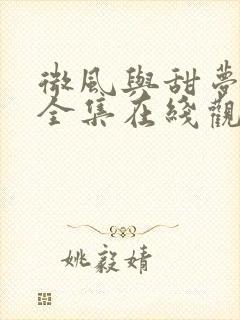 微風與甜夢
全集在綫觀
姚毅婧